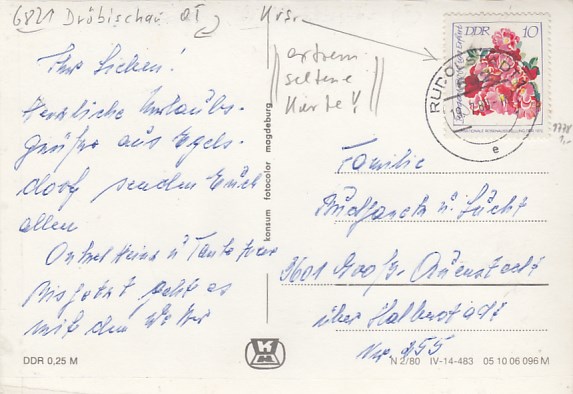 6821 Dröbischau OT
KrSr
extrem
seltene
Karte!
Ihr Lieben!
Herzliche Urlaubs-
grüße aus Egels-
dorf senden Euch
allen
Onkel Heinz u Tante
Bis jetzt geht es
mit dem Wetter
konsum fotocolor magdeburg
DDR 10
RUDOLSTADT
e
1778
1,-
Familie
u. Lucht
3601 Groß-Quenstedt
über Halberstadt
Nr. 255
DDR 0,25 M
N 2/80 IV-14-483 05 10 06 096 M